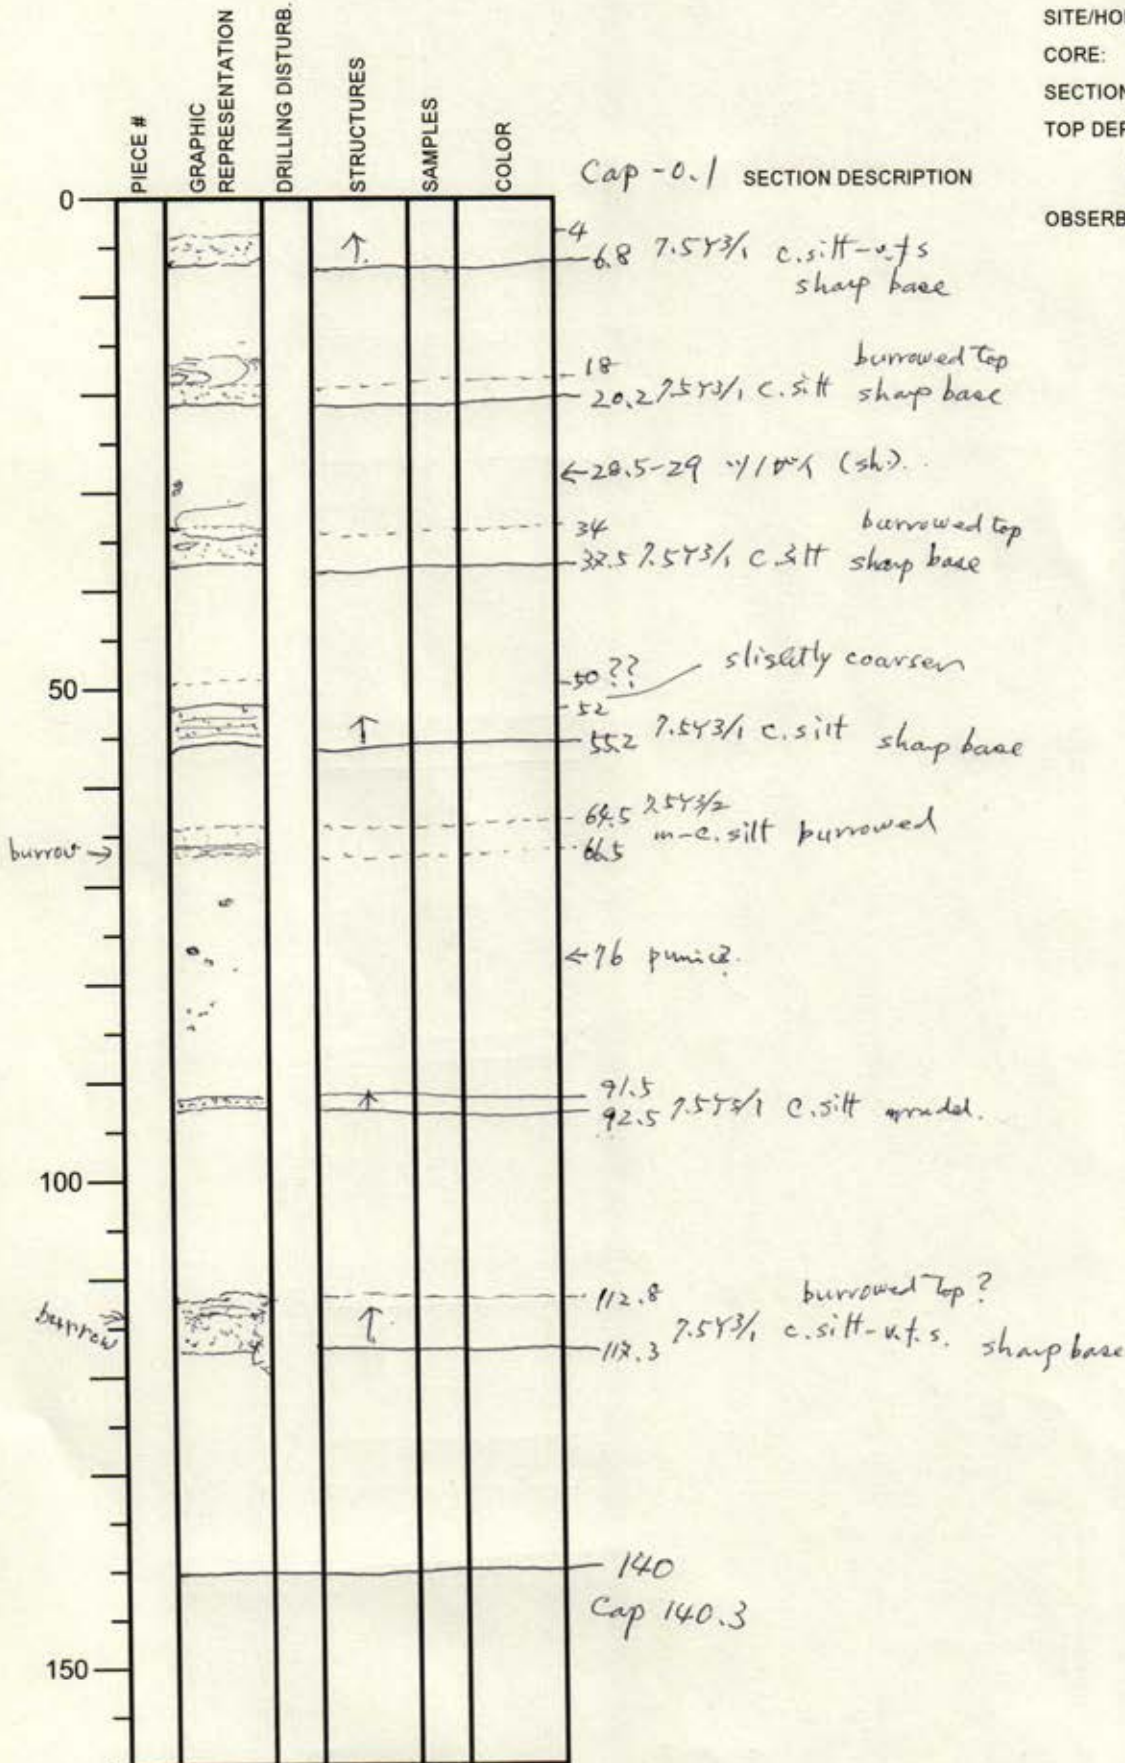 SITE/HO
CORE:
SECTION
TOP DEP
OBSERB
PIECE #
GRAPHIC
REPRESENTATION
DRILLING DISTURB.
STRUCTURES
SAMPLES
COLOR
Cap -0.1 SECTION DESCRIPTION
0
4
6.8 7.5Y3/1 c.silt-v.f s
sharp base
18 burrowed top
20.2 7.5Y3/1 c.silt sharp base
←28.5-29 (sh.)
34 burrowed top
37.5 7.5Y3/1 c.silt sharp base
50
50?? slightly coarser
52
55.2 7.5Y3/1 c.silt sharp base
64.5 7.5Y3/2
m-c.silt burrowed
burrow → 66.5
←76 pumice.
91.5
92.5 7.5Y3/1 c.silt
100
112.8 burrowed top?
burrow
117.3 7.5Y3/1 c.silt-v.f.s. sharp base
140
Cap 140.3
150